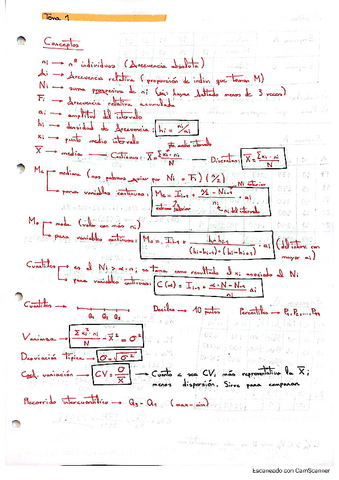 Tema 1
Conceptos
ni → nº individuos (frecuencia absoluta)
fi → frecuencia relativa (proporción de indiv que toman M)
Ni → suma ni (si haya faltado menos de 3 veces)
Fi → frecuencia relativa acumulada
ai → amplitud del intervalo
hi → densidad de frecuencia: hi = ni/ai
xi → punto medio intervalo
X̄ → media → Continuas: X̄ = Σxi·ni/N → Discretas: X̄ = Σxi·ni/N
Me → mediana (nos podemos guiar por Ni = Fi) (N/2)
para variables continuas: Me = Ii-1 + (N/2 - Ni-1)/ni · ai
Mo → moda (valor con más ni)
para variables continuas: Mo = Ii-1 + (hi-hi-1)/((hi-hi-1)+(hi-hi+1)) · ai (del intervalo con mayor hi)
Cuantiles → es el Ni > α·n; se toma como resultado el xi asociado al Ni
para variables continuas: C(α) = Ii-1 + (α·N-Ni-1)/ni · ai
Cuartiles → Q1 Q2 Q3 Deciles → 10 partes Percentiles → P1, P2, ... P99
Varianza → Σxi²·ni/N - X̄² = σ²
Desviación típica → σ = √σ²
Coef. variación → CV = σ/X̄ → Cuanto < sea CV, más representativa la X̄;
menos dispersión. Sirve para comparar
Recorrido intercuartílico → Q3 - Q1 (max - min)
Escaneado con CamScanner